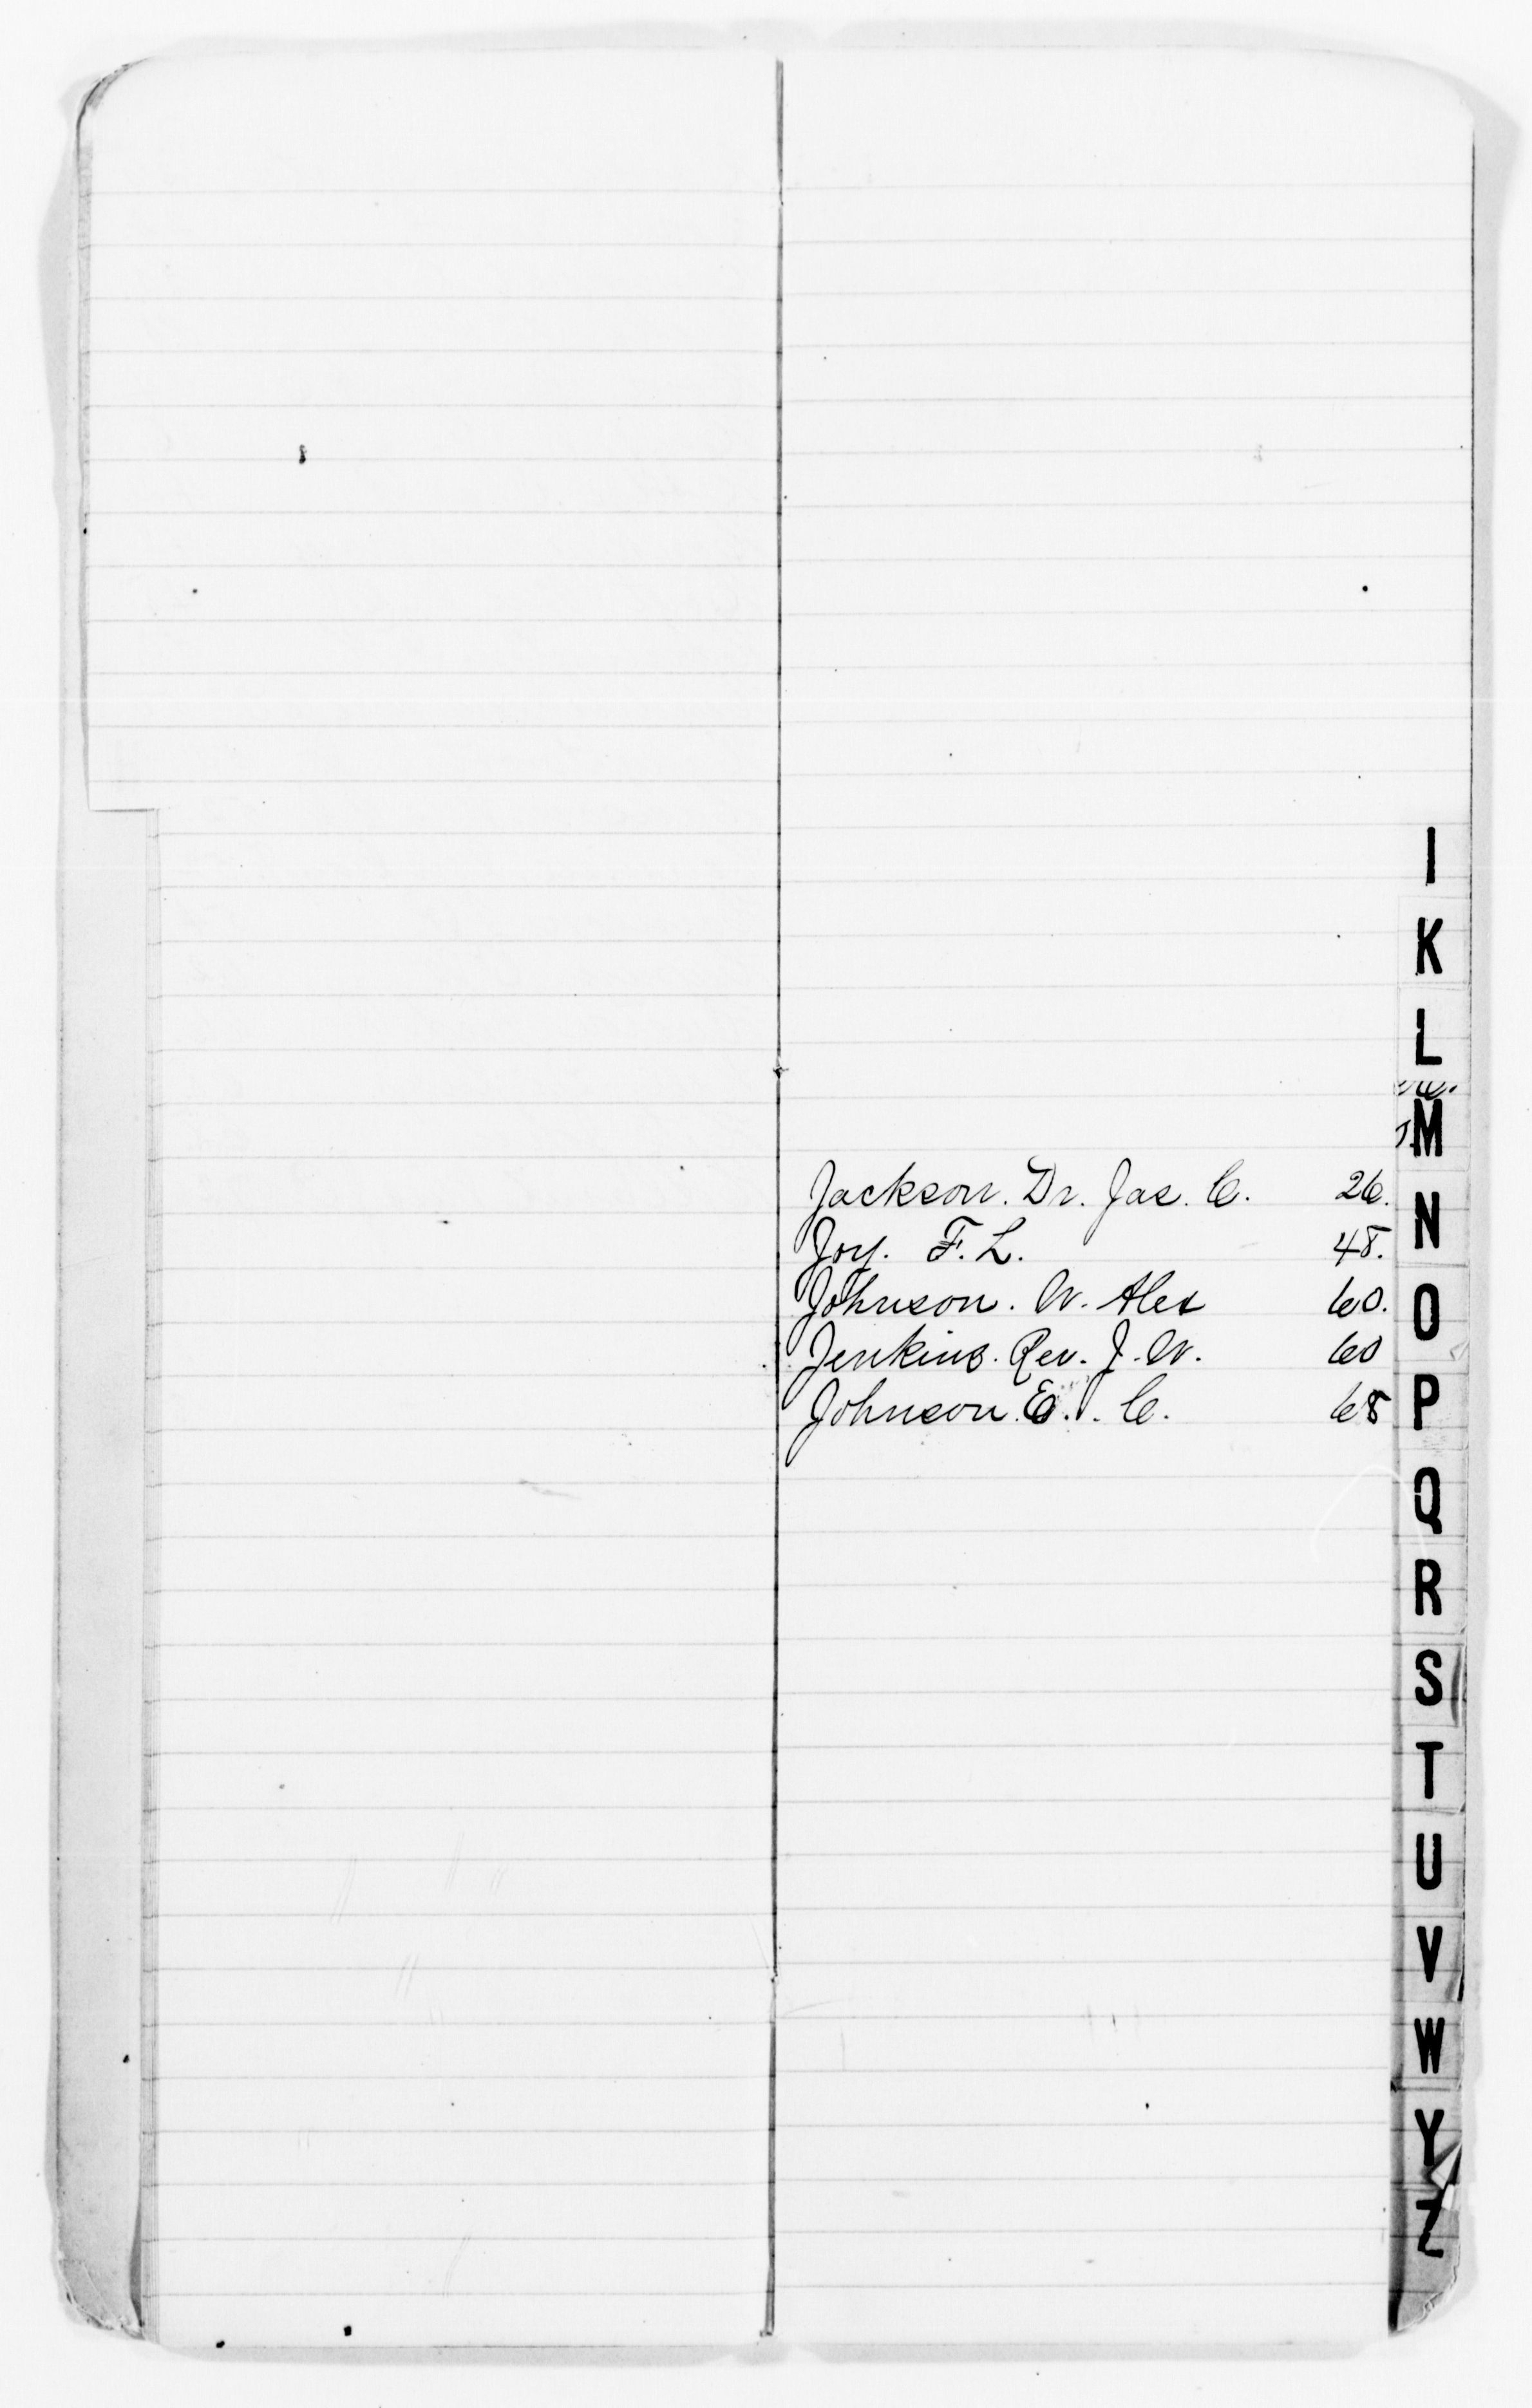 I
K
L
M
Jackson. Dr. Jas. C. 26.
N
Joy. F. L. 48.
Johnson. W. Alex 60.
O
Jenkins. Rev. J. W. 60
Johnson. E. C. 68
P
Q
R
S
T
U
V
W
Y
Z